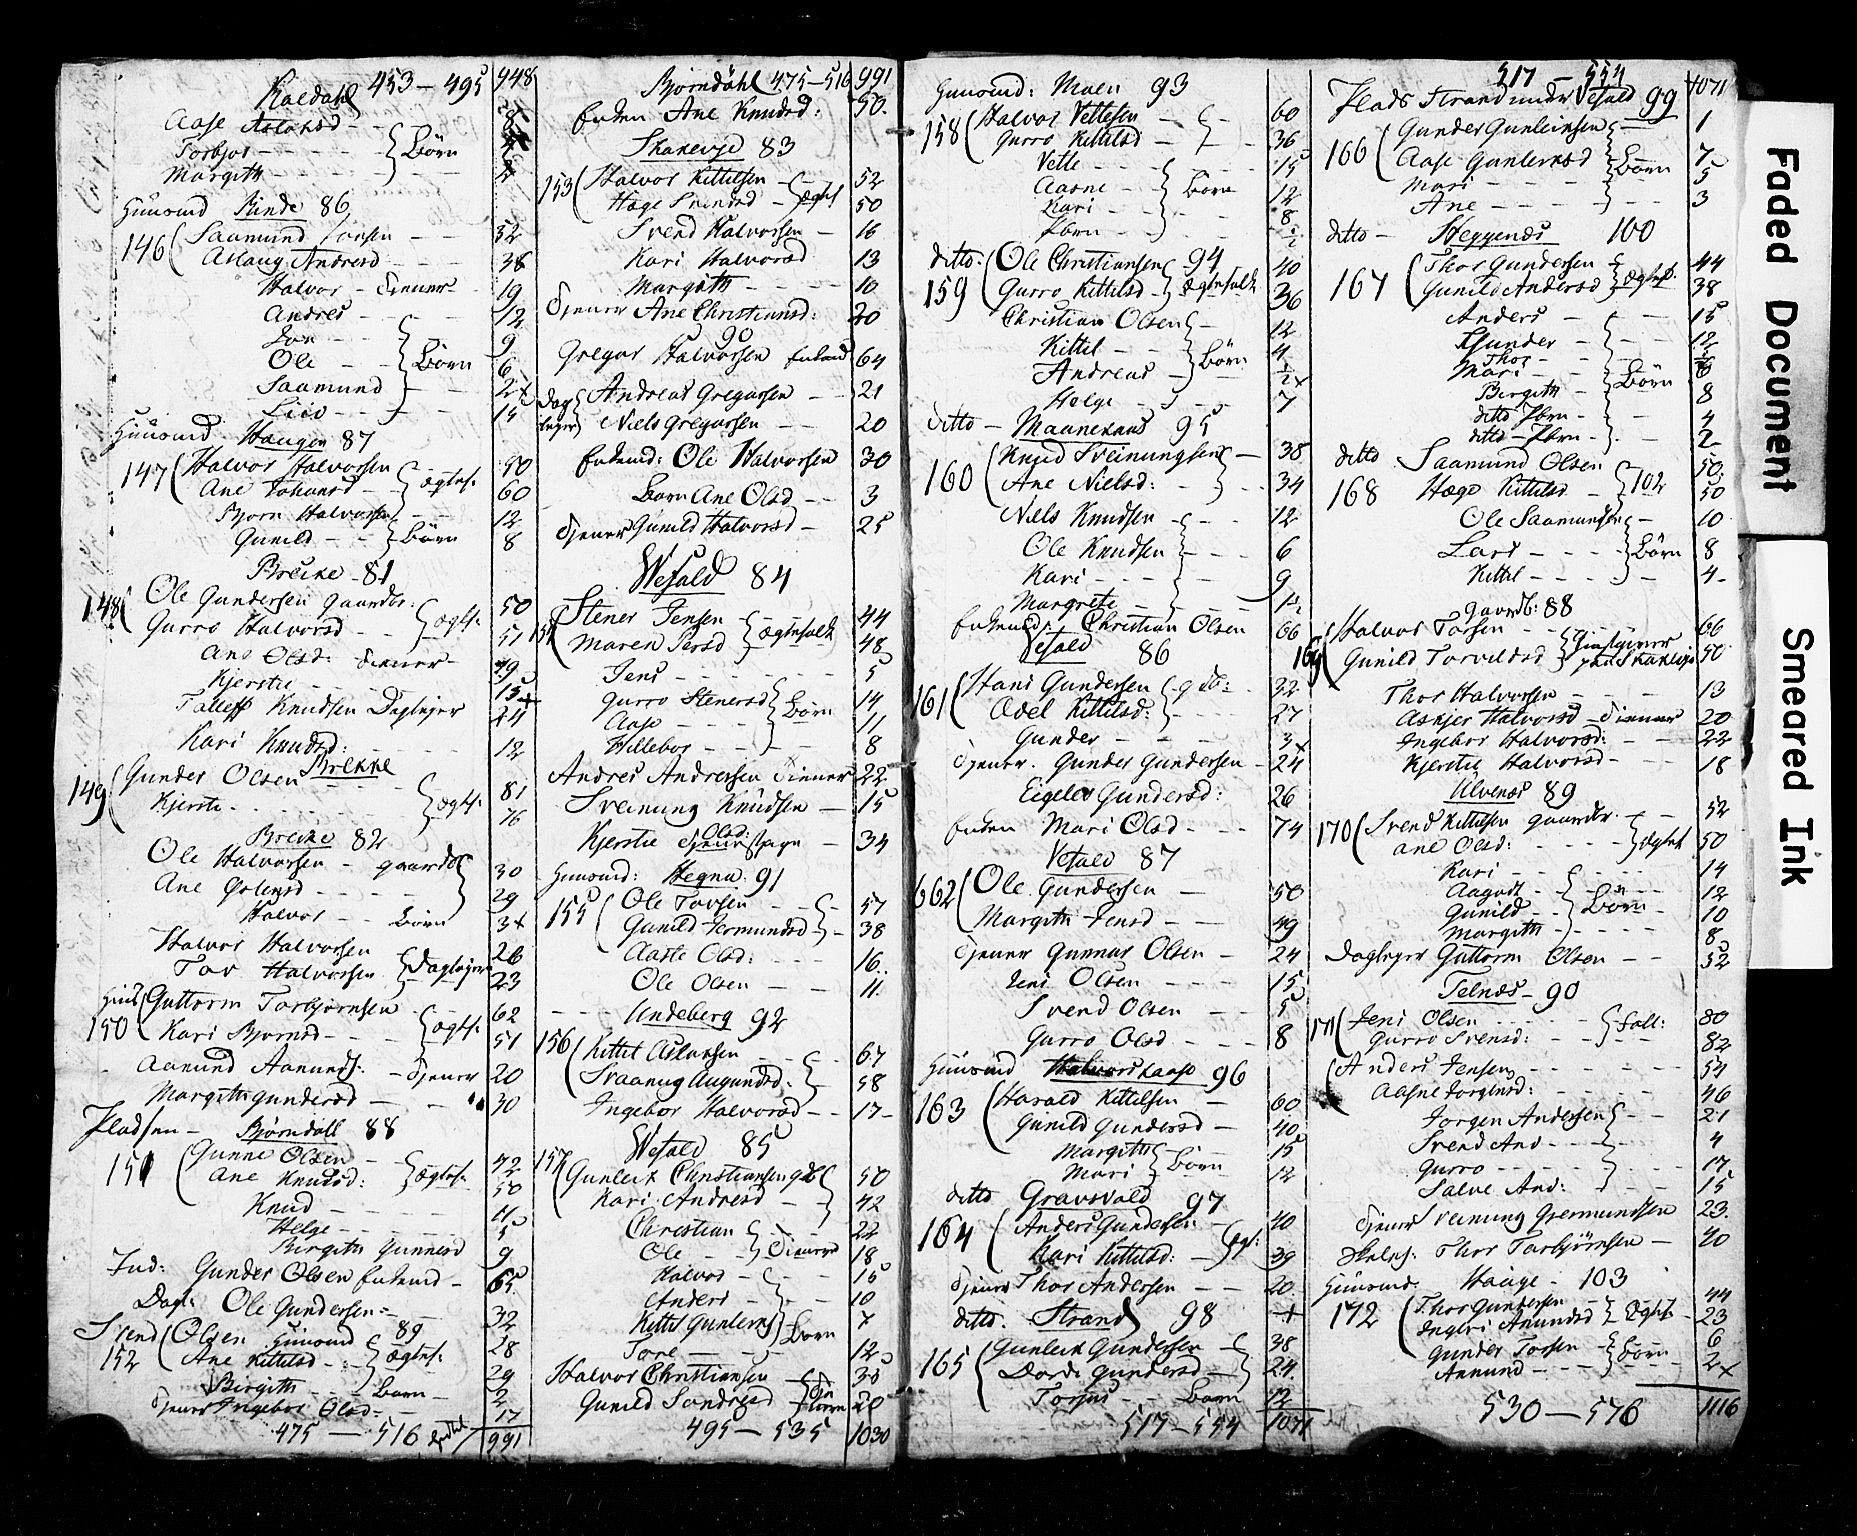 Roldahl 453 — 495 948
Aase Aslaksd - - 8
Torbjor - - - - -
Margith - - - - } Börn
Huusmd Rinde 86
146 ( Saamund Jonsen - 32
Aslaug Andersd - - - - 38
Halvor - Tiener - 19
Andres - - - 12
Jon - - 9
Ole - - } Börn 6
Saamund 2
Liv - - - 15
Huusmd Haugen 87
147 ( Halvor Halvorsen
Ane Johansd - - } Ægtef: 60
Bjorn Halvorsen - - 12
Gunild - - } Börn 8
Breike - 81
148 ( Ole Gundersen gaardbr: 50
Gurro Halvorsd - - } Ægtf: 51
Ane Olsd: Tiener -
Kjerstie - - - -
Talleff Knudsen Daglejer 24
Kari Knudsd: 12
Brekke
149 ( Gunder Olsen 81
Kjersti - } ægtf: 76
Breike 82
Ole Halvorsen - gaardb 30
Ane - - - - 29
Halvor - - Börn 3
Halvor Halvorsen 26
Tov Halvorsen } Dagleiere 23
Huus ( Guttorm Torbjornsen 62
150 Kari Bjornsd - - - } ægtf: 51
Aamund Aamunds: - Tjener 20
Margith Gundersd — - - 30
Pladsen - Björndall 88
151 ( Gunne Olsen - - 42
Ane Knudsd: } Ægtef: 50
Knud - - - - -
Helge - - - - 5
Birgith Gunnesd 9
Ind: Gunder Olsen Enkemd - 65
Dagl: Ole Gundersen - 32
Svend ( Olsen Huusmd 89 28
152 Ane Kittilsd - : } Ægtef: 29
Birgith - - - Barn - 2
Tjener Ingebor Olsd - - 17
475 — 516 991
Bjorndahl 475 — 516 991
Enken Ane Knudsd: 50
Skanevje 83
153 ( Halvor Kittilsen - 52
Hæge Svendsd - } Ægtef 50
Svend Halvorsen - 16
Kari Halvorsd 13
Margith - - - - 10
Tjener Ane Christiansd: 20
90
Gregar Halvorsen Enkemd 64
Dag Andreas Gregarsen - - 21
leyer Niels Gregarsen - - 20
Enkemd: Ole Halvorsen 30
Barn Ane Olsd - - 3
Tjener Gunild Halvorsd - 25
Wefald 84
154 ( Stener Jensen - - - 44
Maren Persd } Ægtefolk 48
Jens - - - - - 5
Gurro Stenersd - - 14
Aase - - - - } Börn 11
Hillebor - - - 8
Andres Andersen Tiener 22
Sveinung Knudsen - 15
Kjerstie Olsd: 34
Huusmd: Hegna 91
155 ( Ole Torsen - 57
Gunild Germundsd - 38
Aaste Olsd: - - - 16
Ole Olsen - - 11
Lindeberg 92
156 ( Kittil Aslaksen - - - - 67
Svaanug Augundsd: - 58
Ingebor Halvorsd - - 17
Wefald 85
157 ( Gunleik Christiansen gdb 50
Kari Andresd - - 42
Christian - - - 22
Ole - - } Tienere 18
Halvor - - - 15
Anders - - - 10
Kittil Gunleiks } Börn 7
Tore - - - 12
Halvor Christiansen - 35
Gunild Sondresd 20
495 — 535 1030
Huusmd: Moen 93
158 ( Halvor Vettesen - - - 60
Gurro Kittilsd - - 36
Vetle - - - 15
Aasne - - } Börn 12
Kari - - 8
Ibm - -
ditto: ( Ole Christiansen 94 40
159 Gurro Kittilsd - } Ægtefolk 36
Christian Olsen - 12
Kittil - - } Börn 4
Andreas - -
Helge - - - 7
ditto - Maanekaas 95
160 ( Knud Sveinungsen - 38
Ane Nielsd: - - 34
Niels Knudsen - - - 12
Ole Knudsen - - - 6
Kari - - - - 9
Margrete - - -
Enkemd: Christian Olsen 66
Vefald 86
161 ( Hans Gundersen - gdb: 32
Adel Kittilsd: - - - 27
Gunder - - - - 3
Tjener. Gunder Gundersen - 24
Eigelev Gundersd: 26
Enken Mari Olsd - - - 74
Vefald 87
662 ( Ole Gundersen - 50
Margith Jensd - - - 49
Tjener Gunnar Olsen - 24
Jens Olsen - - - 15
Svend Olsen - - 5
Gurro Olsd - - - 8
Huusmd Halvorskaase 96
163 ( Harald Kittilsen - 60
Gunild Gundersd - 40
Margith - - - 15
Mari } Börn 12
ditto Gravsvald 97
164 ( Anders Gundersen - 40
Kari Kittilsd: - } 39
Tjener Thor Andersen - - 20
ditto. Strand 98
165 ( Gunleik Gundersen - 38
Dordi Gundersd - 24
Torjus - - Barn 12
517 - 554 1071
517 — 554 1071
Plads Strand under Vefald 99
166 ( Gunder Gunleiksen - 1
Aase Gunleiksd 7
Mari - - - - } Börn 5
Ane - - - 3
ditto - Heggenæs 100
167 ( Thor Gundersen - 44
Gunild Andersd } Ægtef: 38
Anders - - - - 15
Gunder - - - - 12
Thor - - -
Mari - - - } Börn
Birgith - - - 8
ditto Ibm - - - 4
ditto - Ibm - 2
ditto Saamund Olsen 50
168 Hæge Kittilsd - } 102 50
Ole Saamundsen - 10
Lars - - - - } Börn 8
Kittil - - - - 4
gaardb: 88
169 ( Halvor Torsen - - 66
Gunild Torvildsd } 50
Thor Halvorsen - - - 13
Askjer Halvorsd - Tiener 20
Ingebor Halvorsd: - - 22
Kjerstie Halvorsd - 18
Ulvenæs 89
170 ( Svend Kittilsen gaardbr. - 52
Ane Olsd: - - - - } Ægtef 50
Kari - - - - 14
Aagodt - - - 12
Gunild - - } Börn - 10
Margith - - - - 8
Dagleyer Guttorm Olsen - - 52
Telnæs - 90
171 ( Jens Olsen - - - - 80
Gurro Svensd: - } Foll: 82
( Anders Jensen - - - - 54
Aasne Jorgensd: - - - 46
Jorgen Andersen - 21
Svend And - - - 4
Gurro - - - - - 17
Salve And: - - - 15
Tjener Sveinung Germundsen 23
Thor Torbjörnsen - 40
Huusmd. Haage - 103
172 ( Thor Gundersen - 44
Ingeri Amundsd } Ægtef - 23
Gunder Torsen - 6
Amund - - - } Börn - 2
530 — 576 1116
Faded Document
Smeared Ink